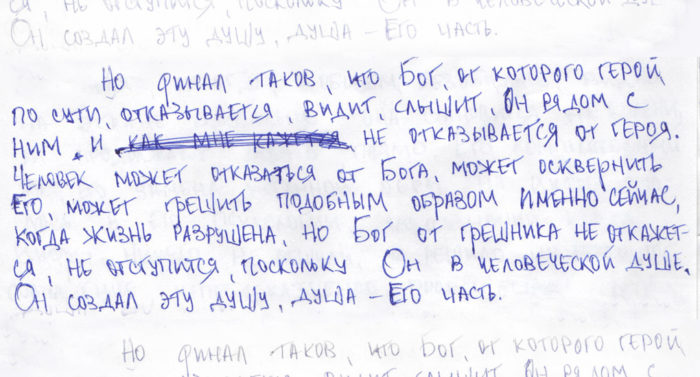 ся, не отступится, поскольку Он в человеческой душе.
Он создал эту душу, душа – Его часть.
Но финал таков, что Бог, от которого герой,
по сути, отказывается, видит, слышит, Он рядом с
ним и как мне кажется не отказывается от героя.
Человек может отказаться от Бога, может осквернить
Его, может грешить подобным образом именно сейчас,
когда жизнь разрушена, но Бог от грешника не откажет-
ся, не отступится, поскольку Он в человеческой душе.
Он создал эту душу, душа – Его часть.
Но финал таков, что Бог, от которого герой
видит, слышит, Он рядом с